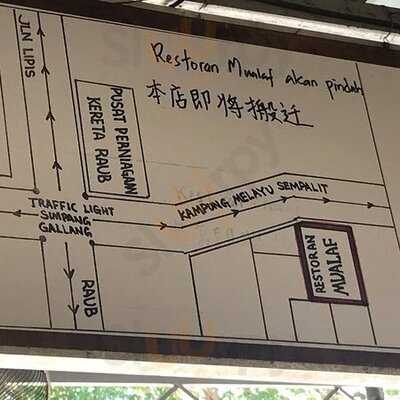 Restoran Mualaf akan pindah
本店即将搬迁
JLN LIPIS
PUSAT PERNIAGAAN
KERETA RAUB
TRAFFIC LIGHT
SIMPANG
GALLANG
KAMPUNG MELAYU SEMPALIT
RESTORAN
MUALAF
RAUB